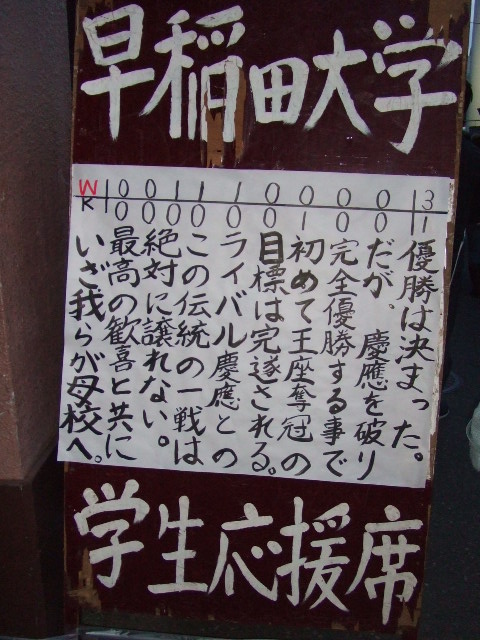 早稲田大学
W 0 0 1 1 1 0 0 0 0 3
K 0 0 0 0 0 0 1 0 0 1
優勝は決まった。
だが、慶應を破り
完全優勝する事で
初めて王座奪冠の
目標は完遂される。
ライバル慶應との
この伝統の一戦は
絶対に譲れない。
最高の歓喜と共に
いざ我らが母校へ。
学生応援席